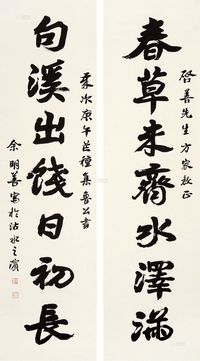 春草未齊水澤滿
啓善先生方家教正
句溪出餞日初長
歲次庚午芒種集魯公書
余明善寫於沽水之濱